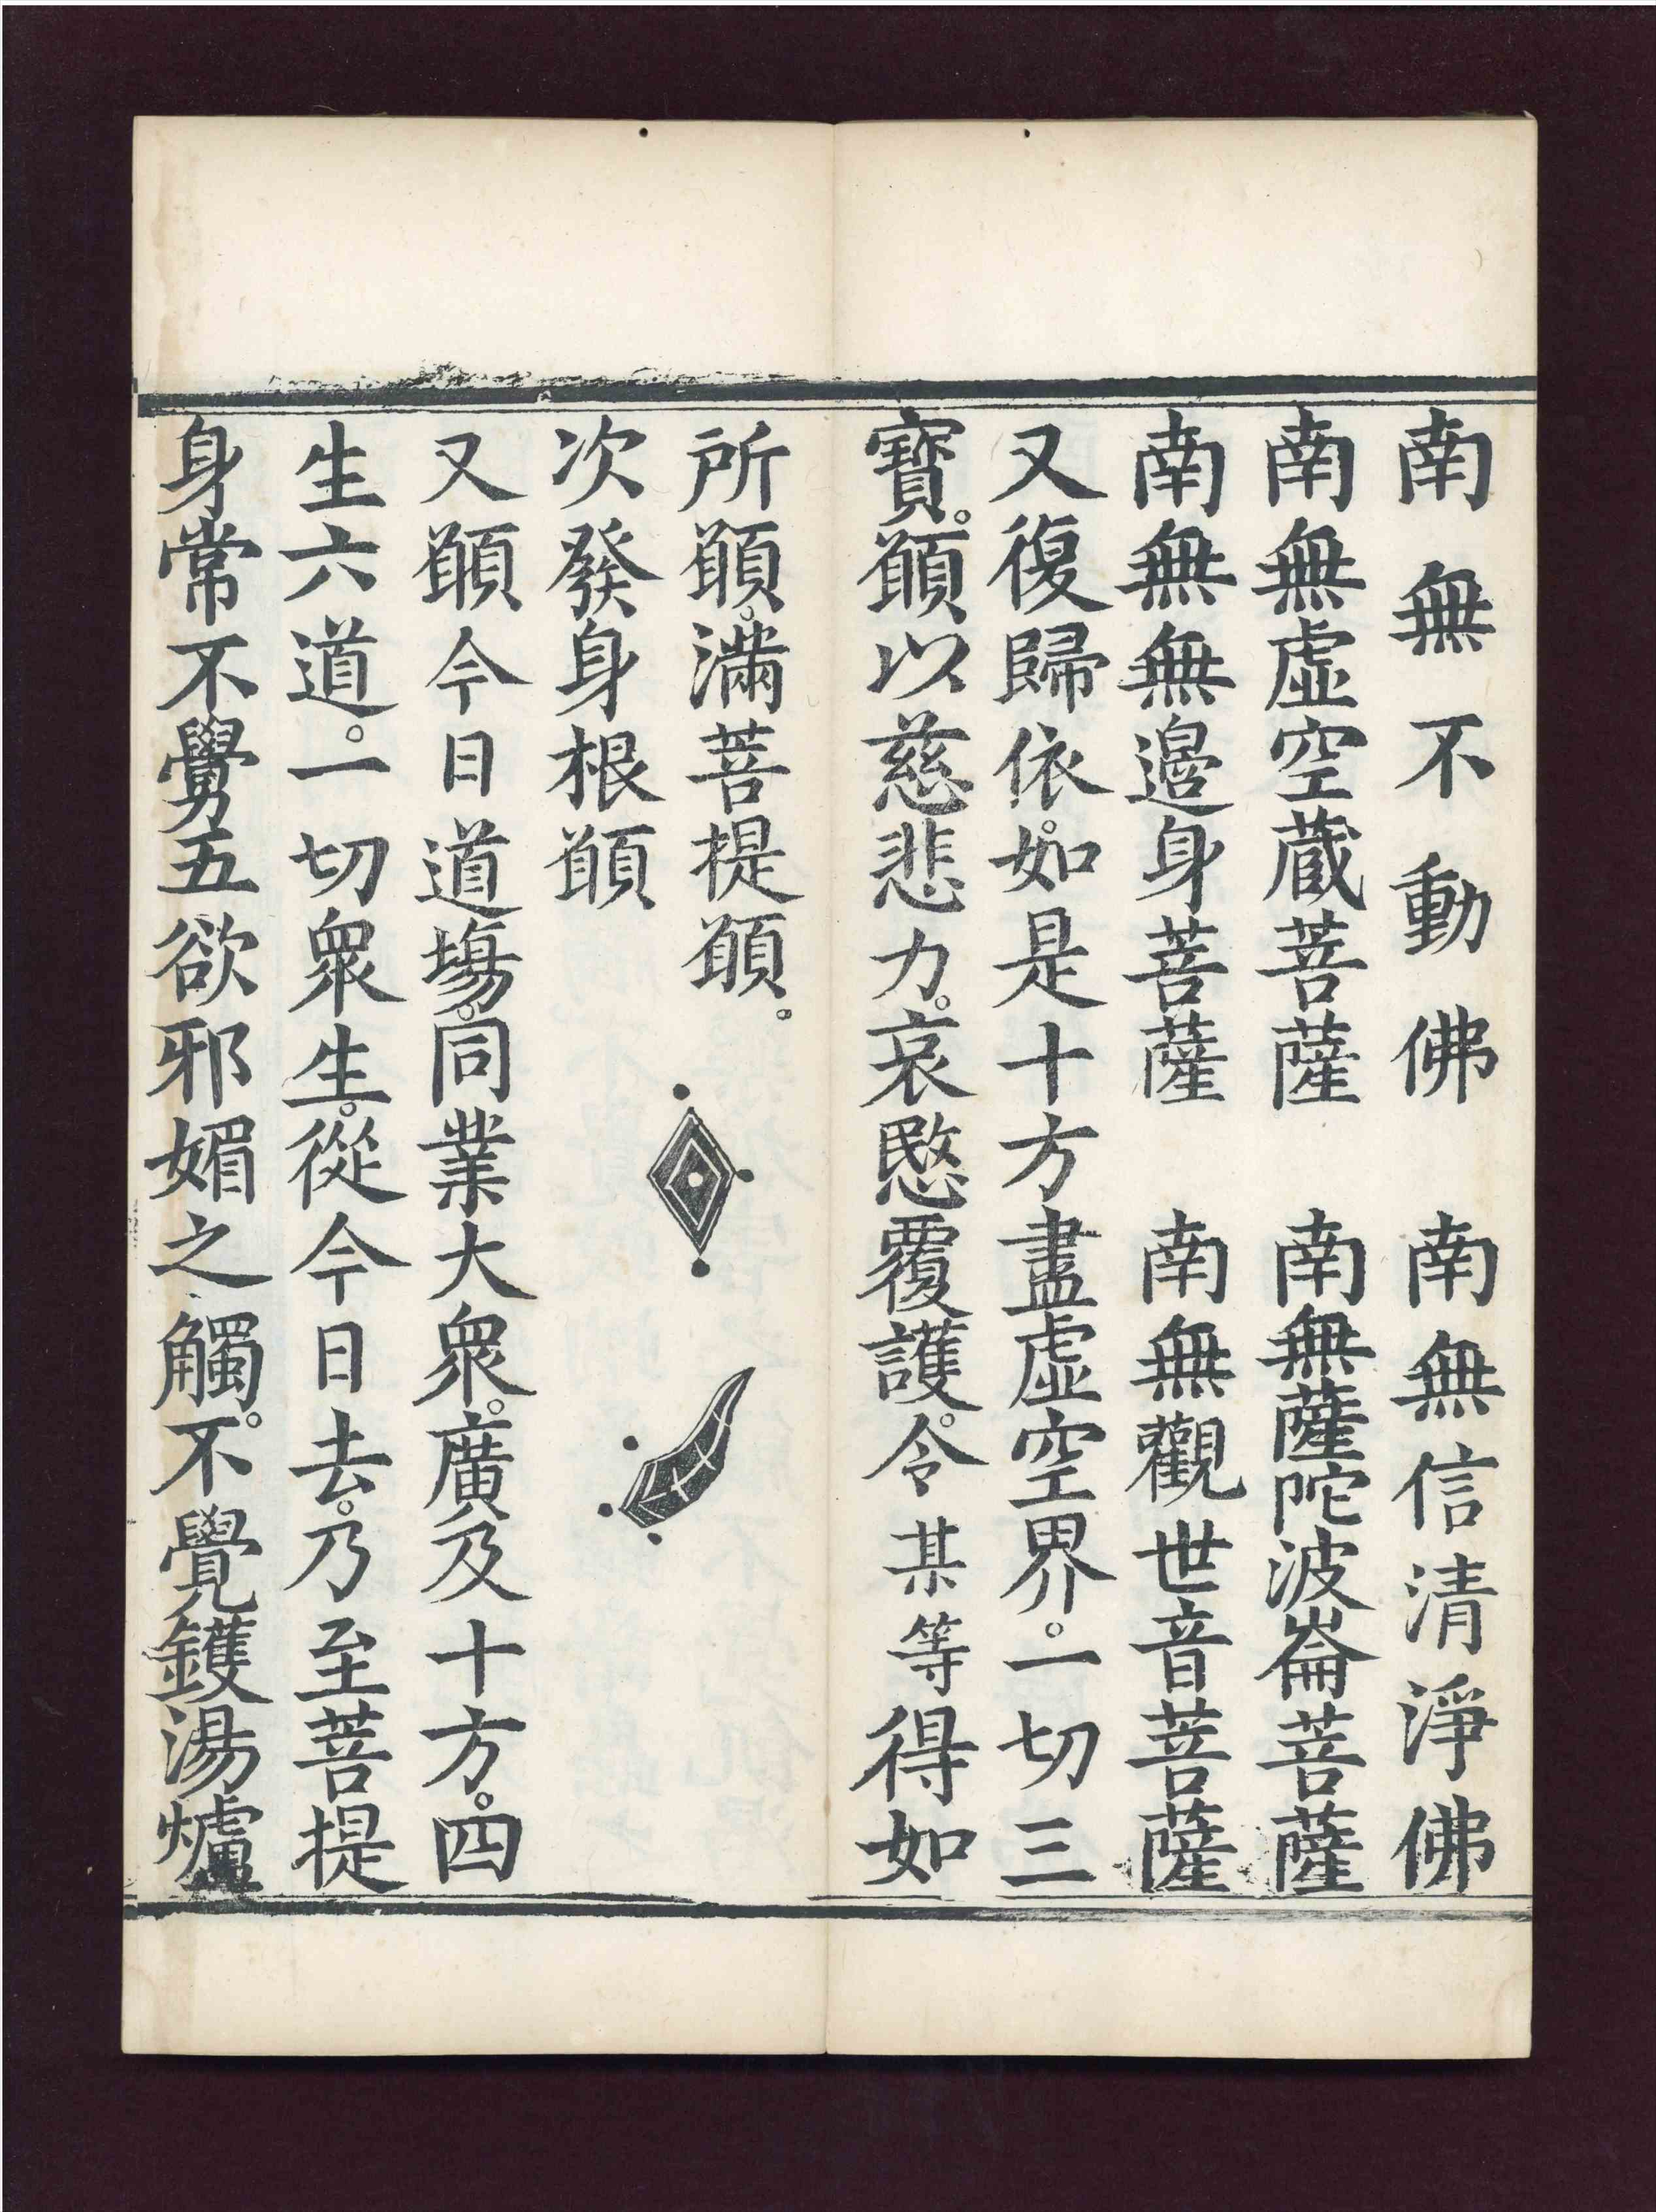 南無不動佛　南無信清淨佛
南無虛空蔵菩薩　南無薩陀波崙菩薩
南無無邊身菩薩　南無觀世音菩薩
又復歸依。如是十方盡虛空界。一切三
寶。願以慈悲力。哀愍覆護。令某等得如
所願。滿菩提願。
次發身根願
又願今日道場。同業大衆。廣及十方。四
生六道。一切衆生。從今日去。乃至菩提
身常不覺五欲邪媚之觸。不覺鑊湯爐